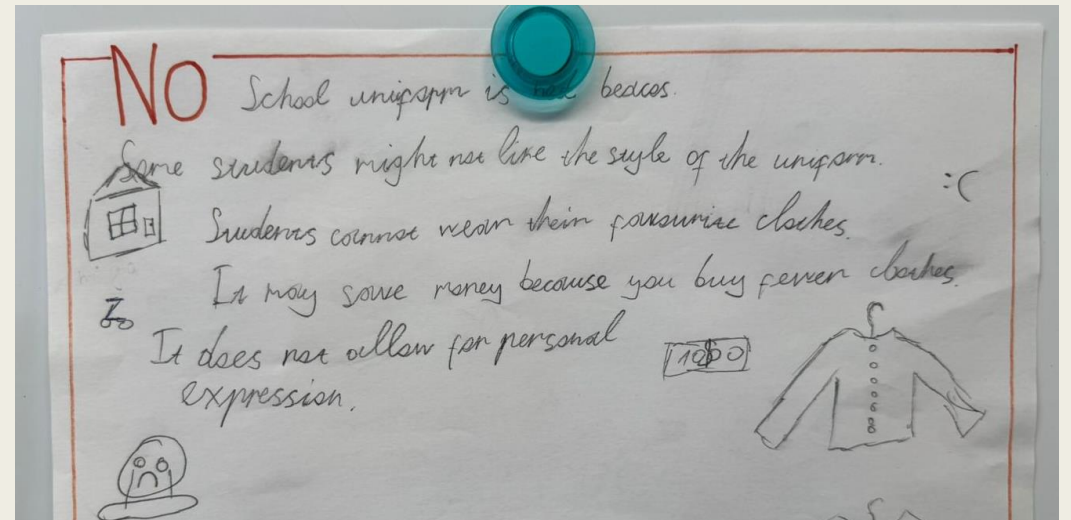 NO School uniform is beacos.
Some students might not like the style of the uniform.
:(
Students cannot wear their favourite clothes.
It may save money because you buy fewer clothes.
It does not allow for personal
expression.
1000